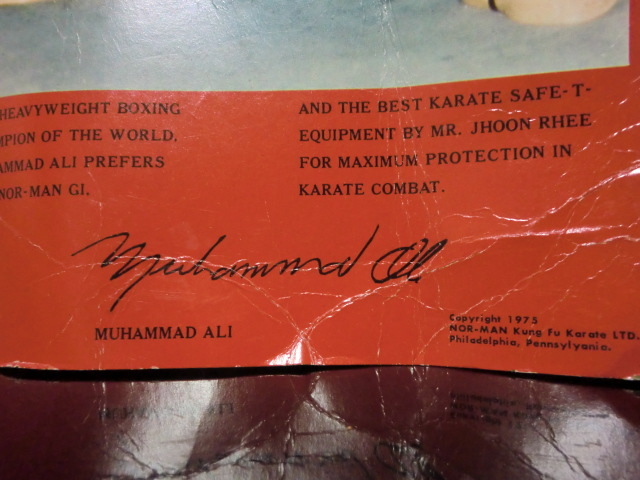 HEAVYWEIGHT BOXING
MPION OF THE WORLD,
AMMAD ALI PREFERS
NOR-MAN GI,
AND THE BEST KARATE SAFE-T-
EQUIPMENT BY MR. JHOON RHEE
FOR MAXIMUM PROTECTION IN
KARATE COMBAT.
Muhammad Ali
MUHAMMAD ALI
Copyright 1975
NOR-MAN Kung Fu Karate LTD.
Philadelphia, Pennsylvania.